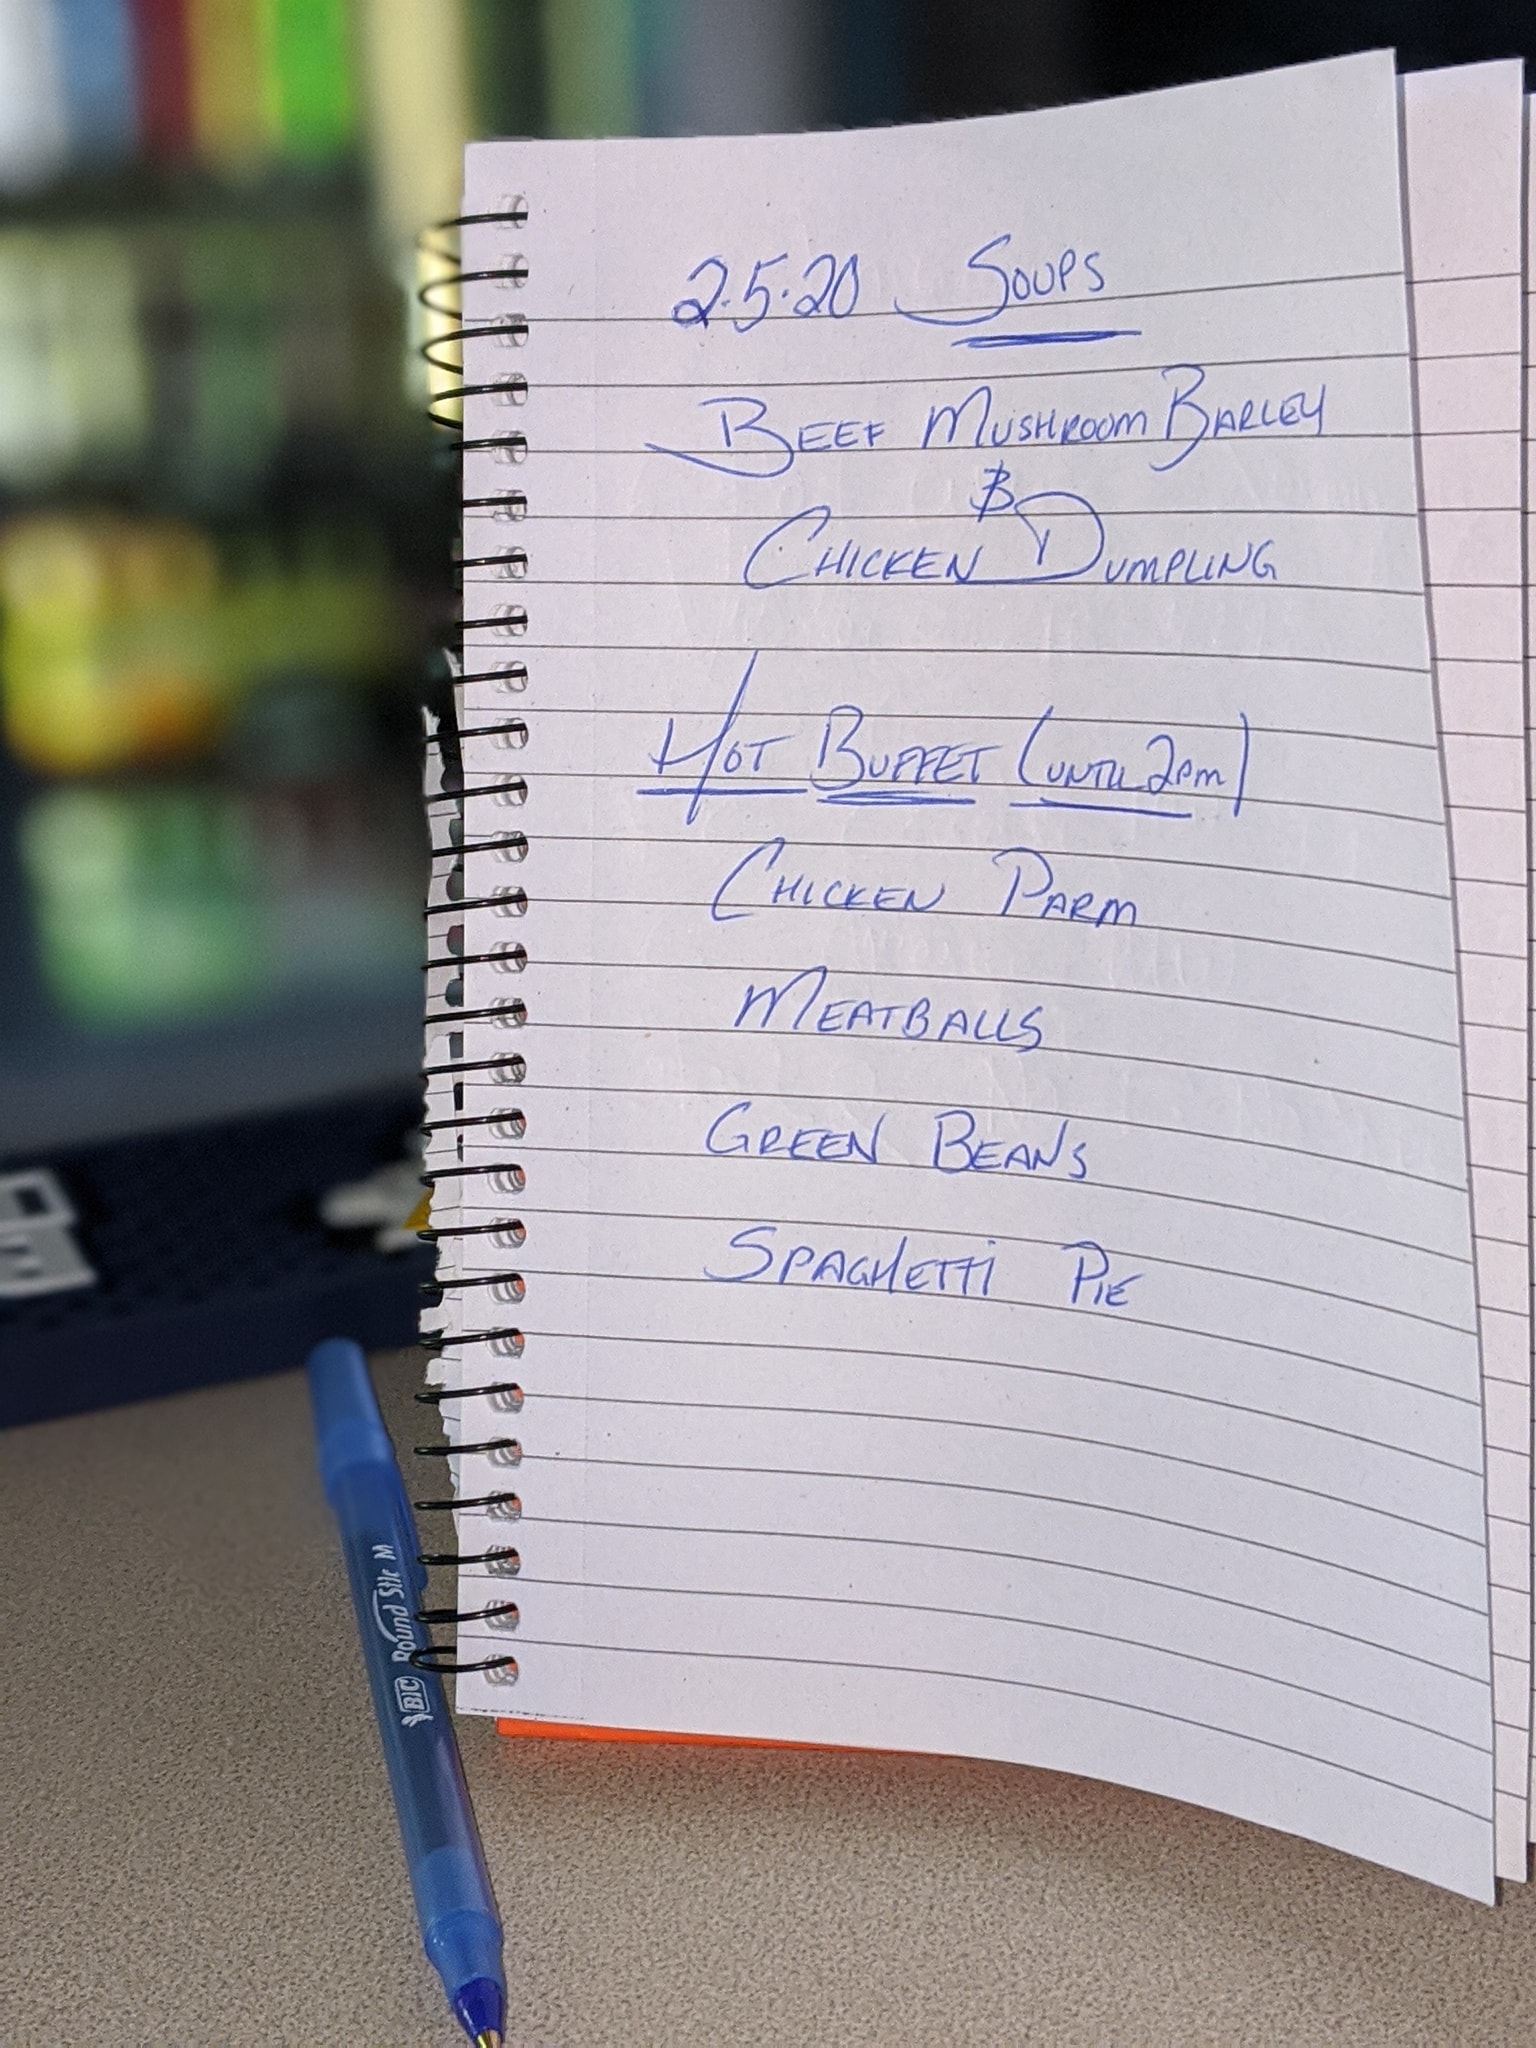 2.5.20 Soups
Beef Mushroom Barley
&
Chicken Dumpling
Hot Buffet (until 2pm)
Chicken Parm
Meatballs
Green Beans
Spaghetti Pie
BIC Round Stic M